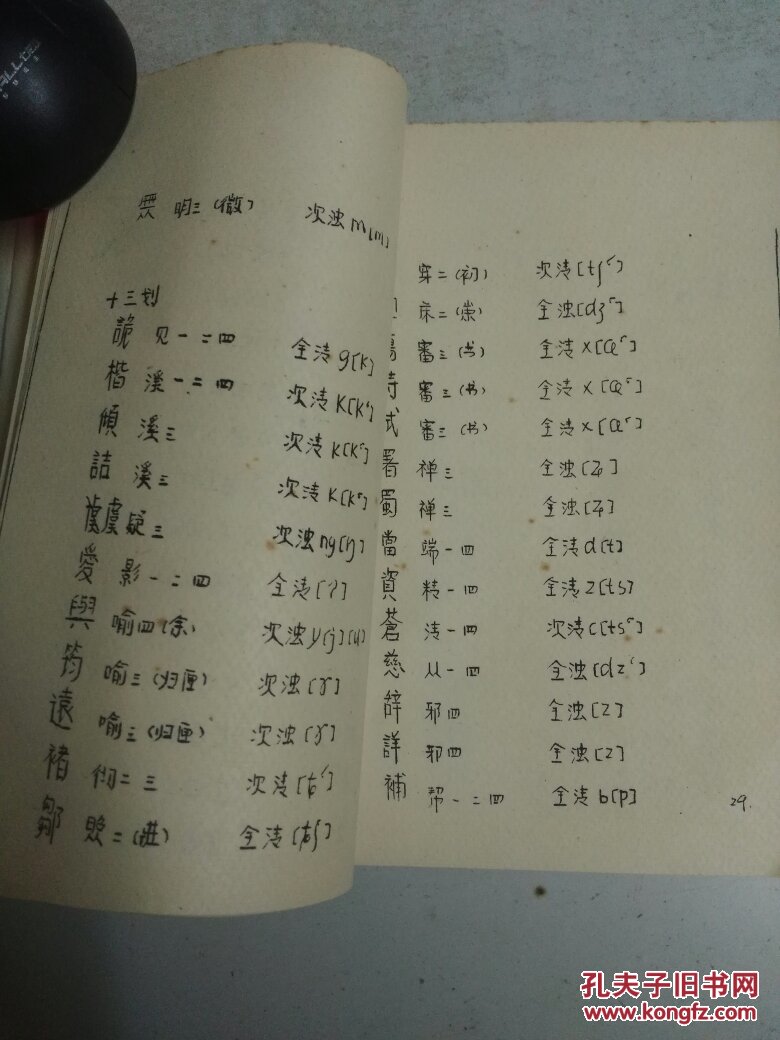 無 明三(微) 次浊m[m]
十三划
詭 见一二四 全清g[k]
楷 溪一二四 次清k[k‘]
傾 溪三 次清k[k‘]
詰 溪三 次清k[k‘]
虞 疑三 次浊ng[ŋ]
愛 影一二四 全清[ʔ]
與 喻四(余) 次浊y[j]
筠 喻三(归匣) 次浊[ɣ]
遠 喻三(归匣) 次浊[ɣ]
褚 彻二三 次清[ȶ‘]
鄒 照二(莊) 全清
穿二(初) 次清[tʃ‘]
床二(崇) 全浊[dʒ‘]
審三(书) 全清x[ɕ]
詩 審三(书) 全清x[ɕ]
式 審三(书) 全清x[ɕ]
署 禅三 全浊[ʑ]
蜀 禅三 全浊[ʑ]
當 端一四 全清d[t]
資 精一四 全清z[ts]
蒼 清一四 次清c[ts‘]
慈 从一四 全浊[dz‘]
辞 邪四 全浊[z]
詳 邪四 全浊[z]
補 帮一二四 全清b[p]
29.
孔夫子旧书网
www.kongfz.com